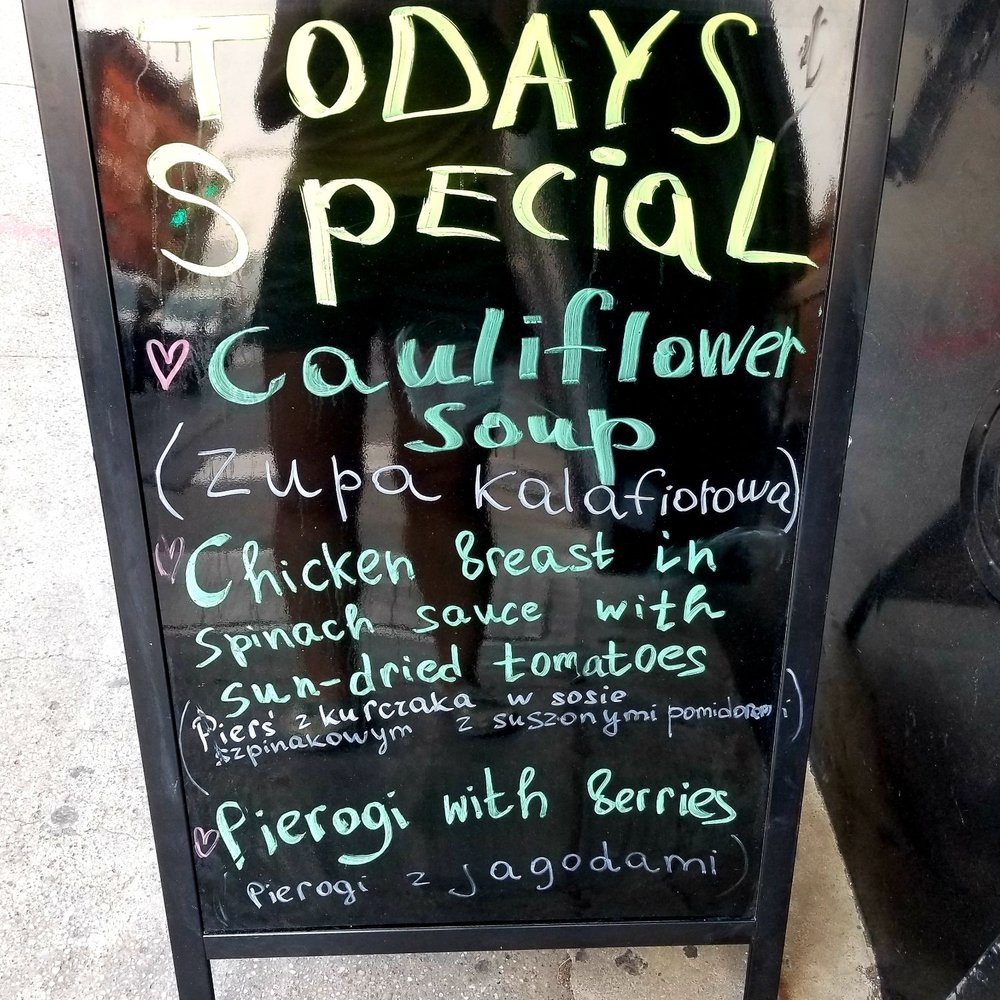 TODAYS
SpECiaL
Cauliflower
soup
(zupa kalafiorowa)
Chicken Breast in
spinach sauce with
sun-dried tomatoes
(Pierś z kurczaka w sosie
szpinakowym z suszonymi pomidorami)
Pierogi with Berries
(pierogi z jagodami)